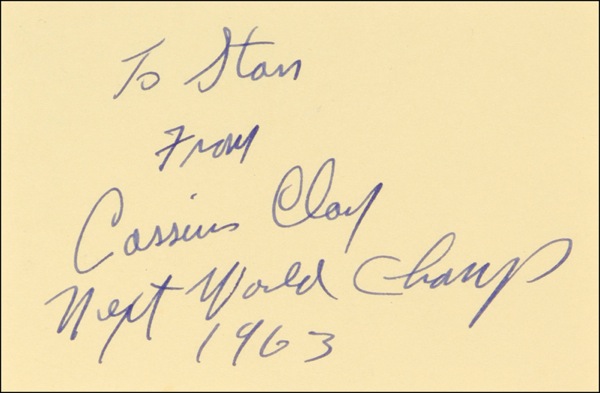 To Stan
From
Cassius Clay
Next World Champ
1963